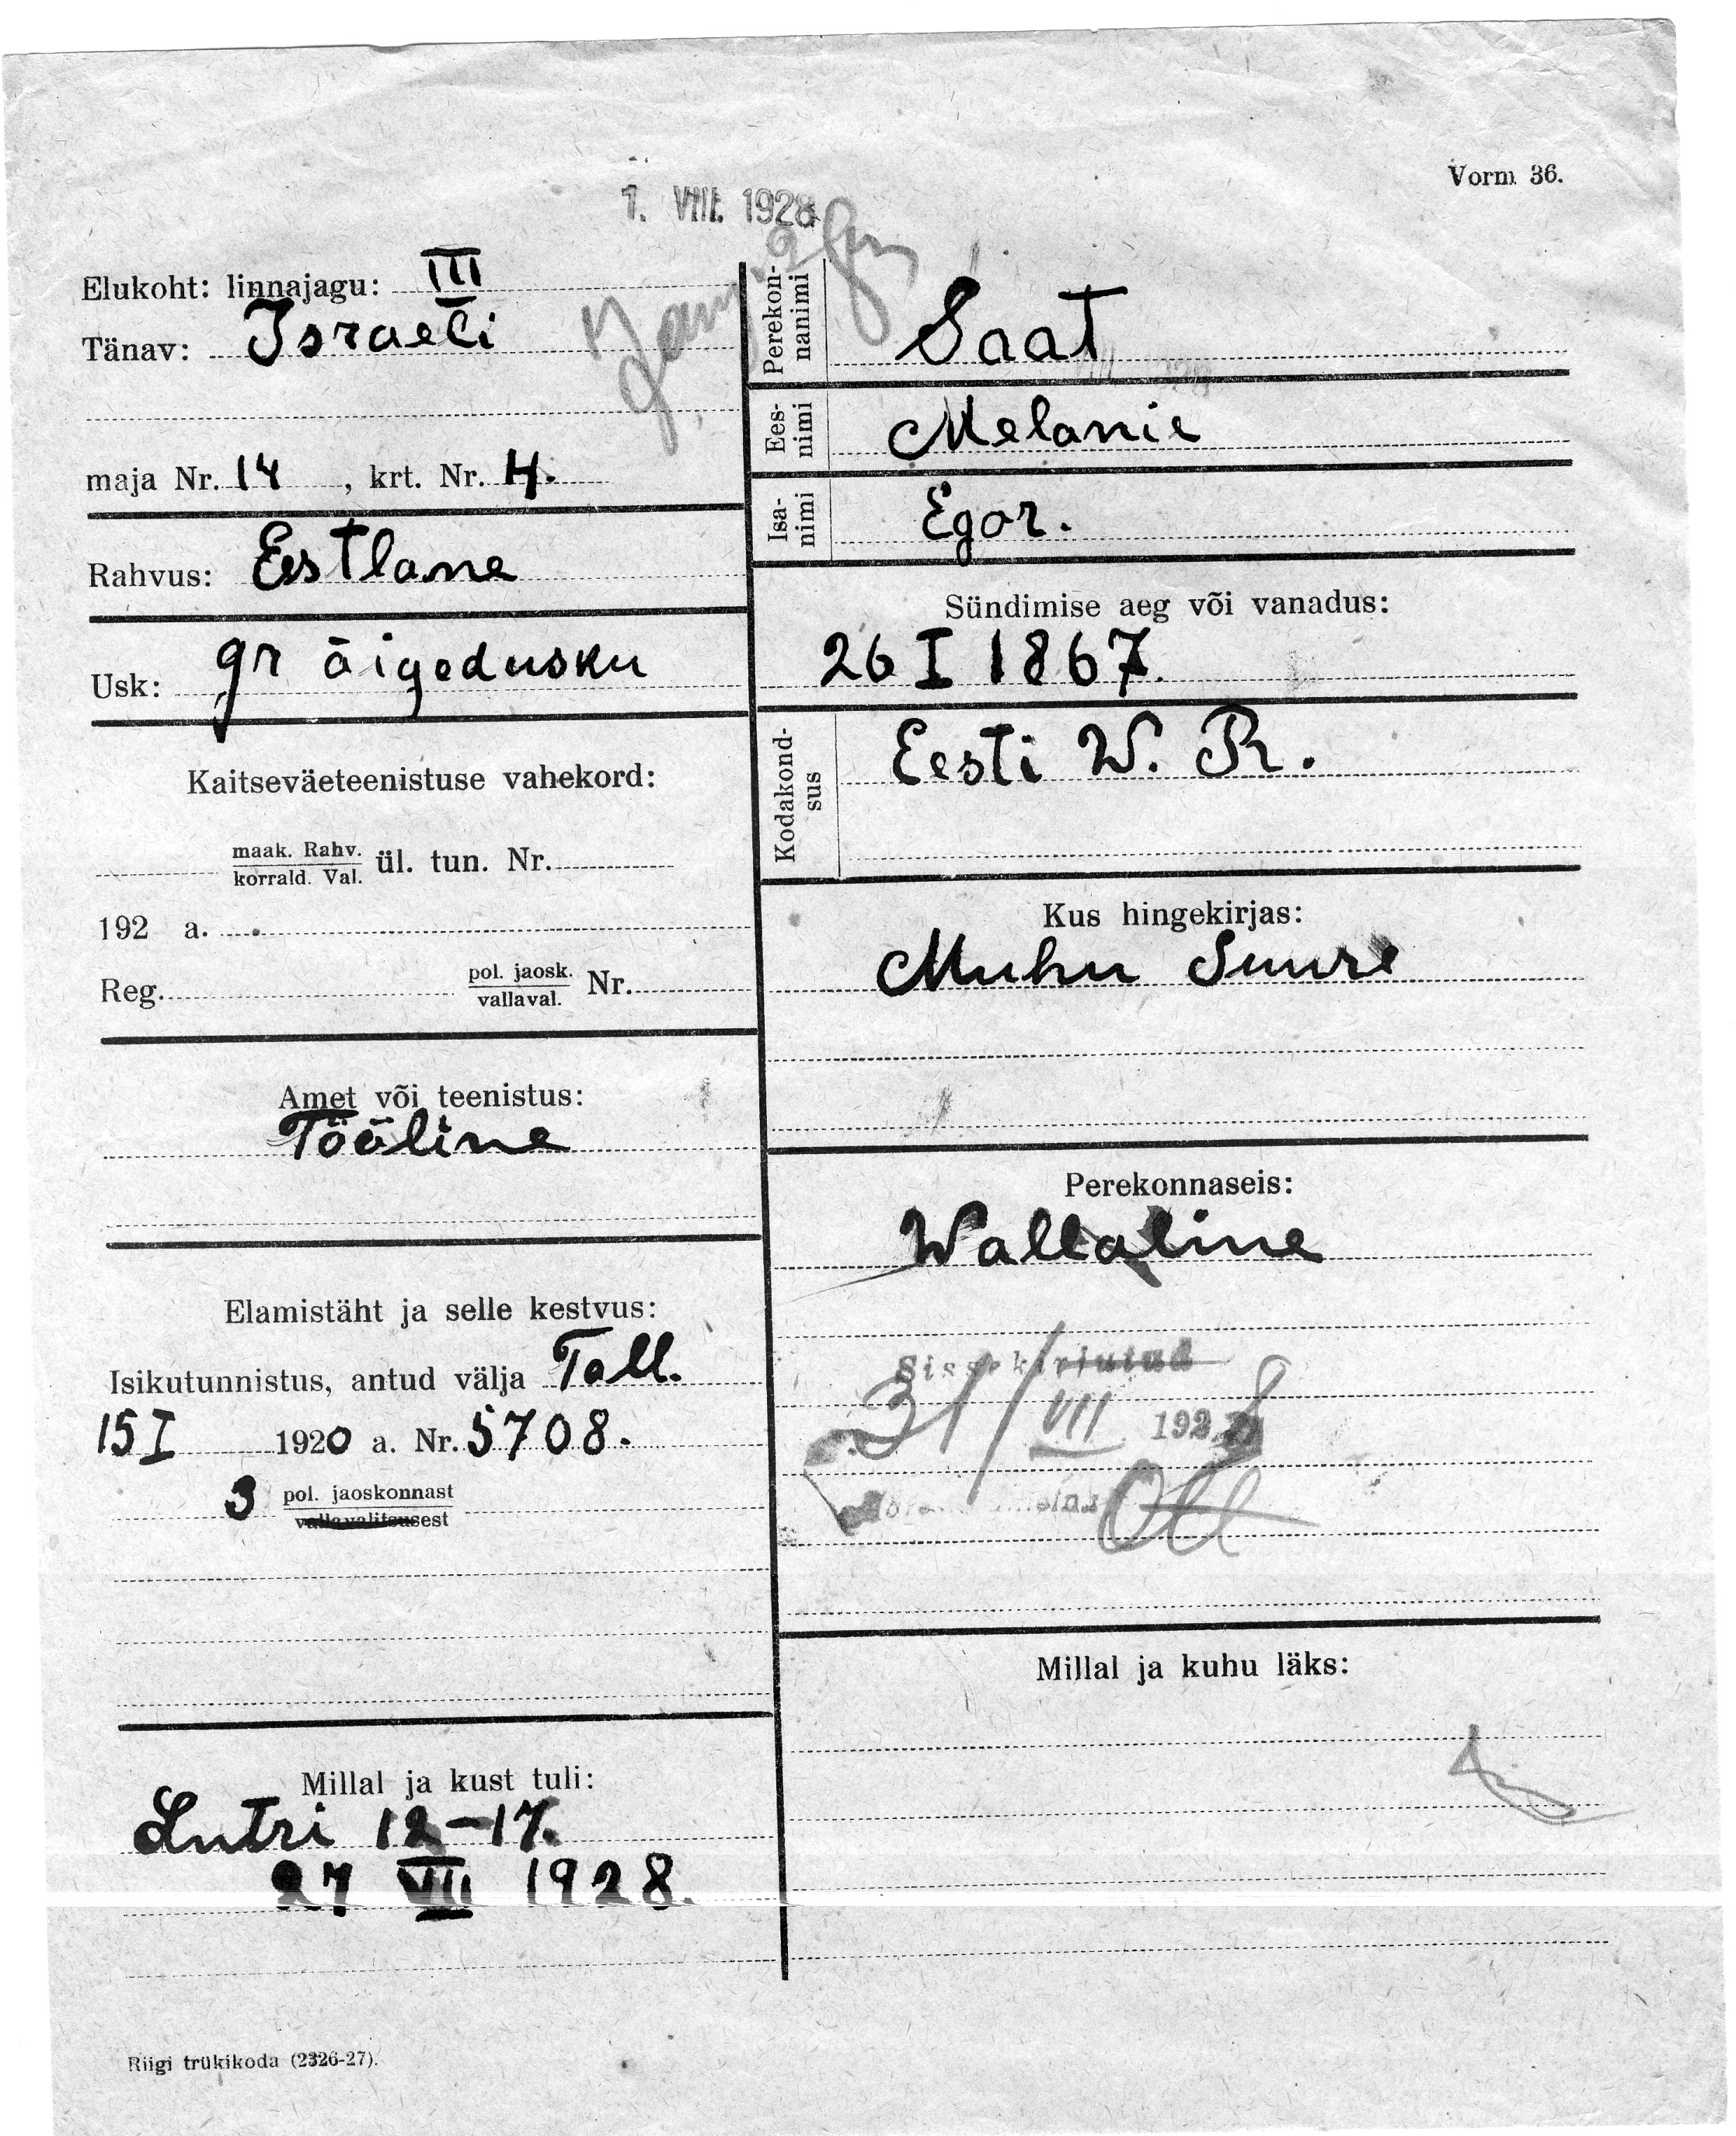 Vorm 36.
1. VIII. 1928
Elukoht: linnajagu: III
Tänav: Israeli
maja Nr. 14 , krt. Nr. 4.
Rahvus: Eestlane
Usk: gr õigedusku
Kaitseväeteenistuse vahekord:
maak. Rahv.
korrald. Val. ül. tun. Nr.
192 a.
Reg. pol. jaosk.
vallaval. Nr.
Amet või teenistus:
Tööline
Elamistäht ja selle kestvus:
Isikutunnistus, antud välja Tall.
15 I 1920 a. Nr. 5708.
3 pol. jaoskonnast
vallavalitsusest
Millal ja kust tuli:
Lutri 12-17.
27 VII 1928.
Perekon-
nanimi
Saat
Ees-
nimi
Melanie
Isa-
nimi
Egor.
Sündimise aeg või vanadus:
26 I 1867.
Kodakond-
sus
Eesti W. R.
Kus hingekirjas:
Muhu Suure
Perekonnaseis:
Wallaline
Sissekirjutud
31/VII 1928
Millal ja kuhu läks:
Riigi trükikoda (2326-27).